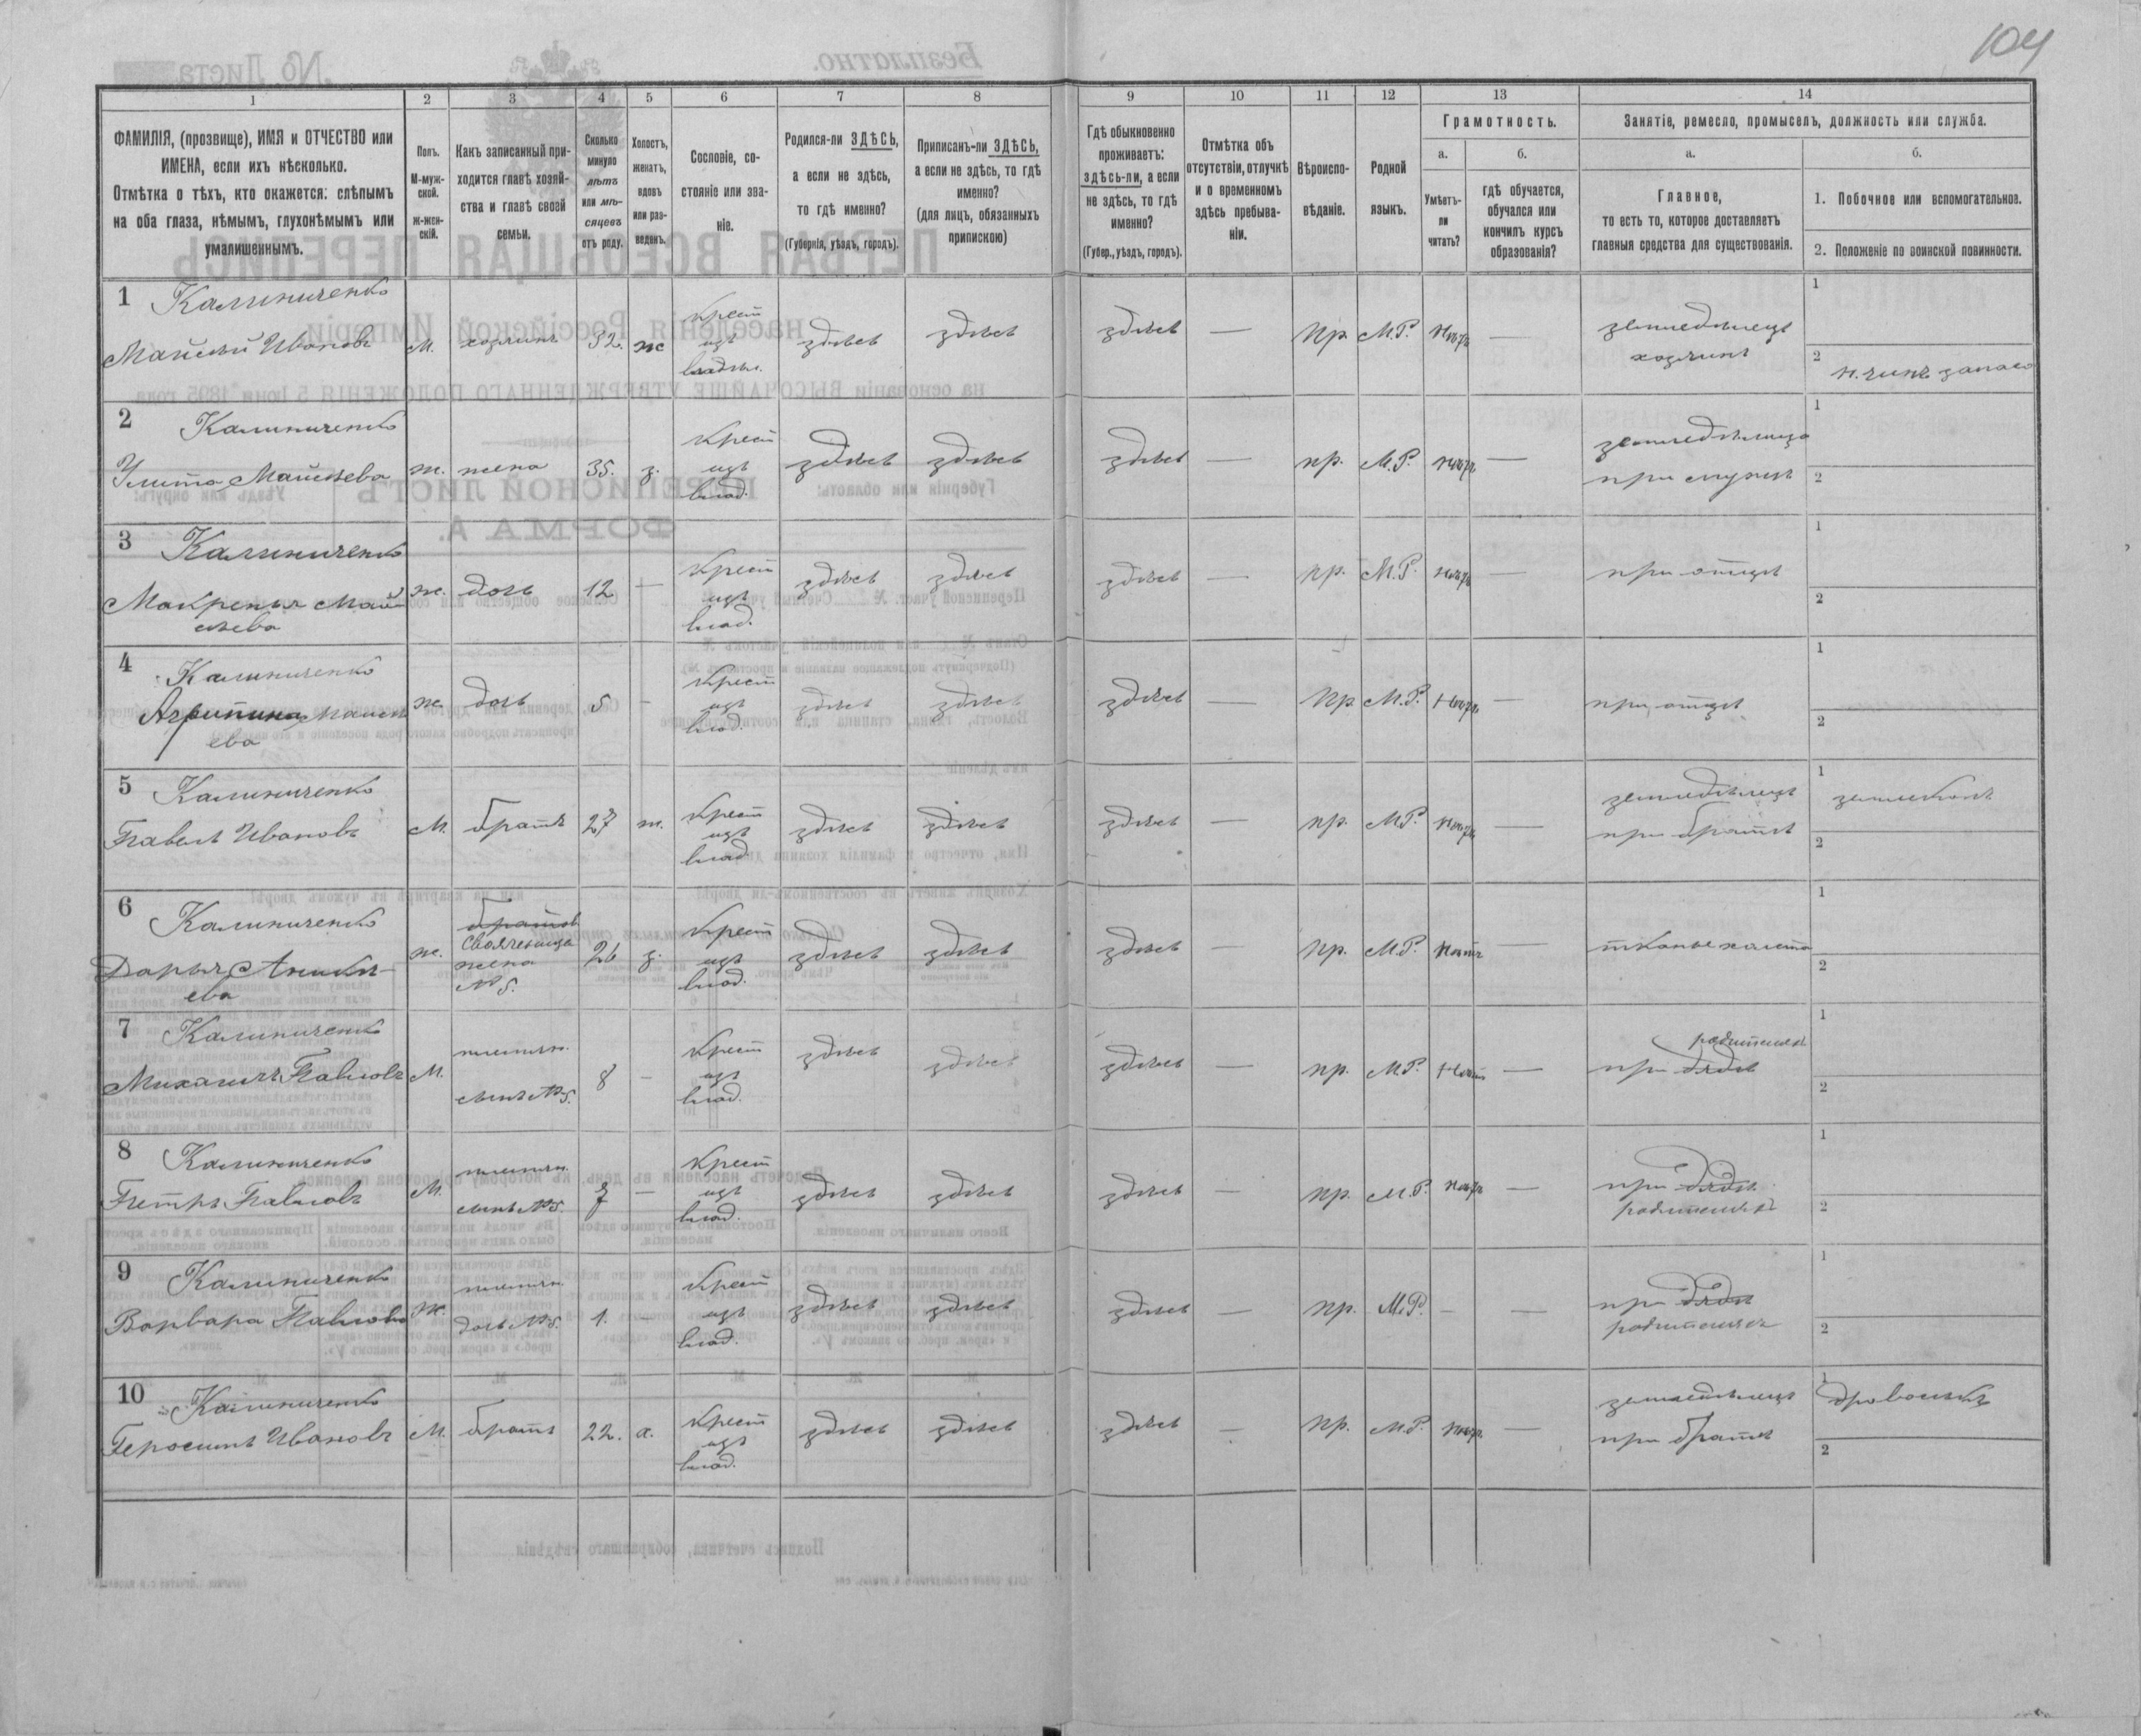 104
1 2 3 4 5 6 7 8 9 10 11 12 13 14
ФАМИЛІЯ, (прозвище), ИМЯ и ОТЧЕСТВО или
ИМЕНА, если ихъ нѣсколько.
Отмѣтка о тѣхъ, кто окажется: слѣпымъ
на оба глаза, нѣмымъ, глухонѣмымъ или
умалишеннымъ.
Полъ.
М-муж-
ской.
ж-жен-
скій.
Какъ записанный при-
ходится главѣ хозяй-
ства и главѣ своей
семьи.
Сколько
минуло
лѣтъ
или мѣ-
сяцевъ
отъ роду.
Холостъ,
женатъ,
вдовъ
или раз-
веденъ.
Сословіе, со-
стояніе или зва-
ніе.
Родился-ли ЗДѢСЬ,
а если не здѣсь,
то гдѣ именно?
(Губернія, уѣздъ, городъ).
Приписанъ-ли ЗДѢСЬ,
а если не здѣсь, то гдѣ
именно?
(для лицъ, обязанныхъ
припискою)
Гдѣ обыкновенно
проживаетъ:
здѣсь-ли, а если
не здѣсь, то гдѣ
именно?
(Губер., уѣздъ, городъ).
Отмѣтка объ
отсутствіи, отлучкѣ
и о временномъ
здѣсь пребыва-
ніи.
Вѣроиспо-
вѣданіе.
Родной
языкъ.
Грамотность.
а.
Умѣетъ-
ли
читать?
б.
гдѣ обучается,
обучался или
кончилъ курсъ
образованія?
Занятіе, ремесло, промыселъ, должность или служба.
а.
Главное,
то есть то, которое доставляетъ
главныя средства для существованія.
б.
1. Побочное или вспомогательное.
2. Положеніе по воинской повинности.
1 Калиниченко
Мойсей Ивановъ М. хозяинъ 32. ж Крест изъ владѣл. здѣсь здѣсь здѣсь — пр. М.Р. нѣтъ — земледѣлецъ хозяинъ 1
2 н. чинъ запаса
2 Калиниченко
Улита Мойсѣева ж. жена 35. з. Крест изъ влад. здѣсь здѣсь здѣсь — пр. М.Р. нѣтъ — земледѣлица при мужѣ 1
2
3 Калиниченко
Макренья Мой
сѣева ж. дочь 12 — Крест изъ влад. здѣсь здѣсь здѣсь — пр. М.Р. нѣтъ — при отцѣ 1
2
4 Калиниченко
Агрипина Мойсѣ
ева ж. дочь 5 — Крест изъ влад. здѣсь здѣсь здѣсь — пр. М.Р. нѣтъ — при отцѣ 1
2
5 Калиниченко
Павелъ Ивановъ М. братъ 27 ж. Крест изъ влад. здѣсь здѣсь здѣсь — пр. М.Р. нѣтъ — земледѣлецъ при братѣ 1 землекопъ
2
6 Калиниченко
Дарья
ева ж. братов. свояченица жена №5. 26 з. Крест изъ влад. здѣсь здѣсь здѣсь — пр. М.Р. нѣтъ — тканье холста 1
2
7 Калиниченко
Михаилъ Павловъ М. племян. сынъ №5. 8 — Крест изъ влад. здѣсь здѣсь здѣсь — пр. М.Р. нѣтъ — при дядѣ родителяхъ 1
2
8 Калиниченко
Петръ Павловъ М. племян. сынъ №5. 7 — Крест изъ влад. здѣсь здѣсь здѣсь — пр. М.Р. нѣтъ — при дядѣ родителяхъ 1
2
9 Калиниченко
Варвара Павлова ж. племян. дочь №5. 1. — Крест изъ влад. здѣсь здѣсь здѣсь — пр. М.Р. — — при дядѣ родителяхъ 1
2
10 Калиниченко
Геросимъ Ивановъ М. братъ 22. х. Крест изъ влад. здѣсь здѣсь здѣсь — пр. М.Р. нѣтъ — земледѣлецъ при братѣ 1 дровосѣкъ
2